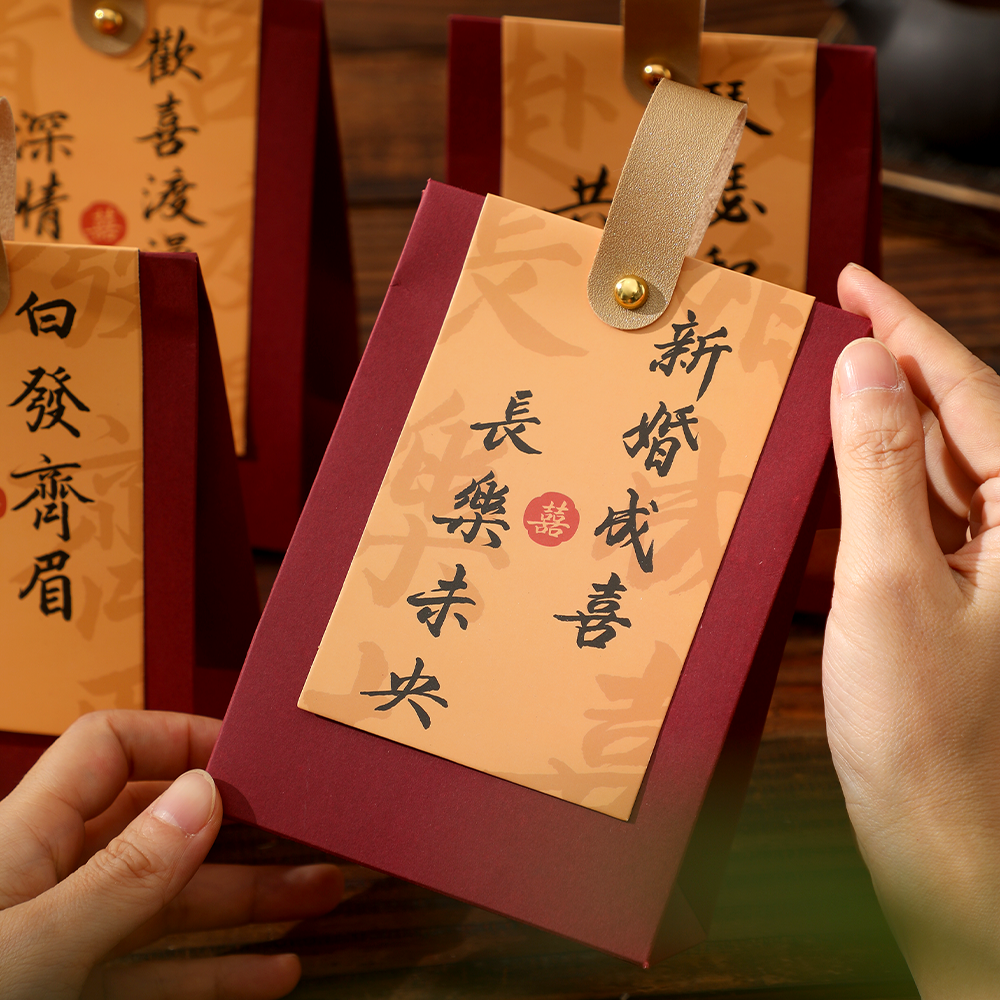 新婚成喜
長樂未央
囍
歡喜渡
深情
囍
白發齊眉